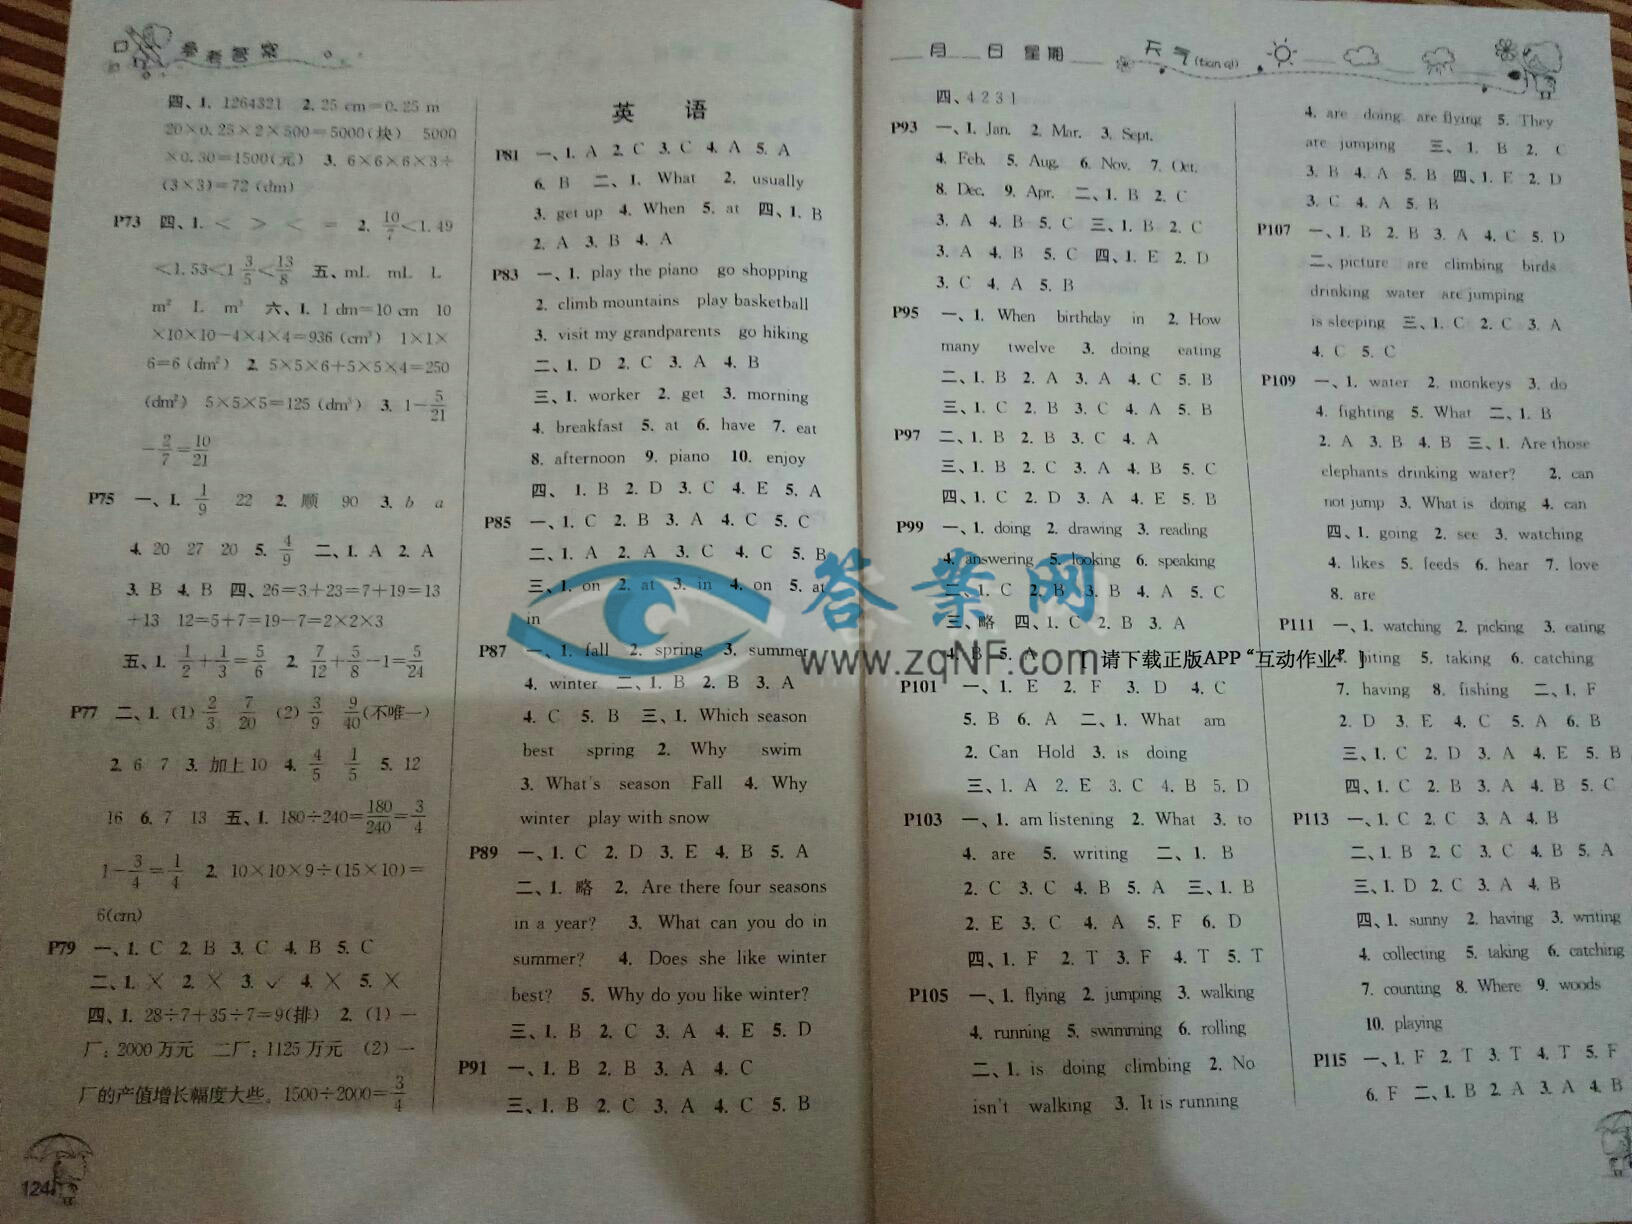 参考答案
四、1. 1264321 2. 25 cm=0.25 m
20×0.25×2×500=5000(块) 5000
×0.30=1500(元) 3. 6×6×6×3÷
(3×3)=72 (dm)
P73 四、1. < > < = 2. 10/7<1.49
<1.53<1 3/5<13/8 五、mL mL L
m² L m³ 六、1. 1 dm=10 cm 10
×10×10-4×4×4=936 (cm³) 1×1×
6=6 (dm²) 2. 5×5×6+5×5×4=250
(dm²) 5×5×5=125 (dm³) 3. 1-5/21
-2/7=10/21
P75 一、1. 1/9 22 2. 顺 90 3. b a
4. 20 27 20 5. 4/9 二、1. A 2. A
3. B 4. B 四、26=3+23=7+19=13
+13 12=5+7=19-7=2×2×3
五、1. 1/2+1/3=5/6 2. 7/12+5/8-1=5/24
P77 二、1. (1) 2/3 7/20 (2) 3/9 9/40(不唯一)
2. 6 7 3. 加上10 4. 4/5 1/5 5. 12
16 6. 7 13 五、1. 180÷240=180/240=3/4
1-3/4=1/4 2. 10×10×9÷(15×10)=
6(cm)
P79 一、1. C 2. B 3. C 4. B 5. C
二、1. × 2. × 3. ✓ 4. × 5. ×
四、1. 28÷7+35÷7=9(排) 2. (1) 一
厂:2000万元 二厂:1125万元 (2) 一
厂的产值增长幅度大些。1500÷2000=3/4
124
英 语
P81 一、1. A 2. C 3. C 4. A 5. A
6. B 二、1. What 2. usually
3. get up 4. When 5. at 四、1. B
2. A 3. B 4. A
P83 一、1. play the piano go shopping
2. climb mountains play basketball
3. visit my grandparents go hiking
二、1. D 2. C 3. A 4. B
三、1. worker 2. get 3. morning
4. breakfast 5. at 6. have 7. eat
8. afternoon 9. piano 10. enjoy
四、1. B 2. D 3. C 4. E 5. A
P85 一、1. C 2. B 3. A 4. C 5. C
二、1. A 2. A 3. C 4. C 5. B
三、1. on 2. at 3. in 4. on 5. at
in
P87 一、1. fall 2. spring 3. summer
4. winter 二、1. B 2. B 3. A
4. C 5. B 三、1. Which season
best spring 2. Why swim
3. What's season Fall 4. Why
winter play with snow
P89 一、1. C 2. D 3. E 4. B 5. A
二、1. 略 2. Are there four seasons
in a year? 3. What can you do in
summer? 4. Does she like winter
best? 5. Why do you like winter?
三、1. B 2. C 3. A 4. E 5. D
P91 一、1. B 2. B 3. A 4. C
三、1. B 2. C 3. A 4. C 5. B
月 日 星期 天气(tian qi)
四、4 2 3 1
P93 一、1. Jan. 2. Mar. 3. Sept.
4. Feb. 5. Aug. 6. Nov. 7. Oct.
8. Dec. 9. Apr. 二、1. B 2. C
3. A 4. B 5. C 三、1. B 2. C
3. A 4. B 5. C 四、1. E 2. D
3. C 4. A 5. B
P95 一、1. When birthday in 2. How
many twelve 3. doing eating
二、1. B 2. A 3. A 4. C 5. B
三、1. C 2. B 3. C 4. A 5. B
P97 二、1. B 2. B 3. C 4. A
三、1. B 2. C 3. A 4. B 5. C
四、1. C 2. D 3. A 4. E 5. B
P99 一、1. doing 2. drawing 3. reading
4. answering 5. looking 6. speaking
二、1. C 2. B 3. B 4. A 5. C
三、略 四、1. C 2. B 3. A
4. B 5. A
P101 一、1. E 2. F 3. D 4. C
5. B 6. A 二、1. What am
2. Can Hold 3. is doing
三、1. A 2. E 3. C 4. B 5. D
P103 一、1. am listening 2. What 3. to
4. are 5. writing 二、1. B
2. C 3. C 4. B 5. A 三、1. B
2. E 3. C 4. A 5. F 6. D
四、1. F 2. T 3. F 4. T 5. T
P105 一、1. flying 2. jumping 3. walking
4. running 5. swimming 6. rolling
二、1. is doing climbing 2. No
isn't walking 3. It is running
4. are doing are flying 5. They
are jumping 三、1. B 2. C
3. B 4. A 5. B 四、1. E 2. D
3. C 4. A 5. B
P107 一、1. B 2. B 3. A 4. C 5. D
二、picture are climbing birds
drinking water are jumping
is sleeping 三、1. C 2. C 3. A
4. C 5. C
P109 一、1. water 2. monkeys 3. do
4. fighting 5. What 二、1. B
2. A 3. B 4. B 三、1. Are those
elephants drinking water? 2. can
not jump 3. What is doing 4. can
四、1. going 2. see 3. watching
4. likes 5. feeds 6. hear 7. love
8. are
P111 一、1. watching 2. picking 3. eating
4. biting 5. taking 6. catching
7. having 8. fishing 二、1. F
2. D 3. E 4. C 5. A 6. B
三、1. C 2. D 3. A 4. E 5. B
四、1. C 2. B 3. A 4. B 5. C
P113 一、1. C 2. C 3. A 4. B
二、1. B 2. C 3. C 4. B 5. A
三、1. D 2. C 3. A 4. B
四、1. sunny 2. having 3. writing
4. collecting 5. taking 6. catching
7. counting 8. Where 9. woods
10. playing
P115 一、1. F 2. T 3. T 4. T 5. F
6. F 二、1. B 2. A 3. A 4. B
答案网
www.zqNF.com
[ 请下载正版APP“互动作业” ]